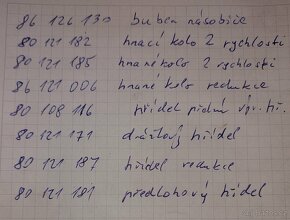 86 126 130 buben násobiče
80 121 182 hnací kolo 2 rychlosti
80 121 185 hnané kolo 2 rychlosti
86 121 006 hnané kolo redukce
80 108 116 hřídel přední výv. hř.
80 121 171 drážkový hřídel
80 121 187 hřídel redukce
80 121 181 předlohový hřídel